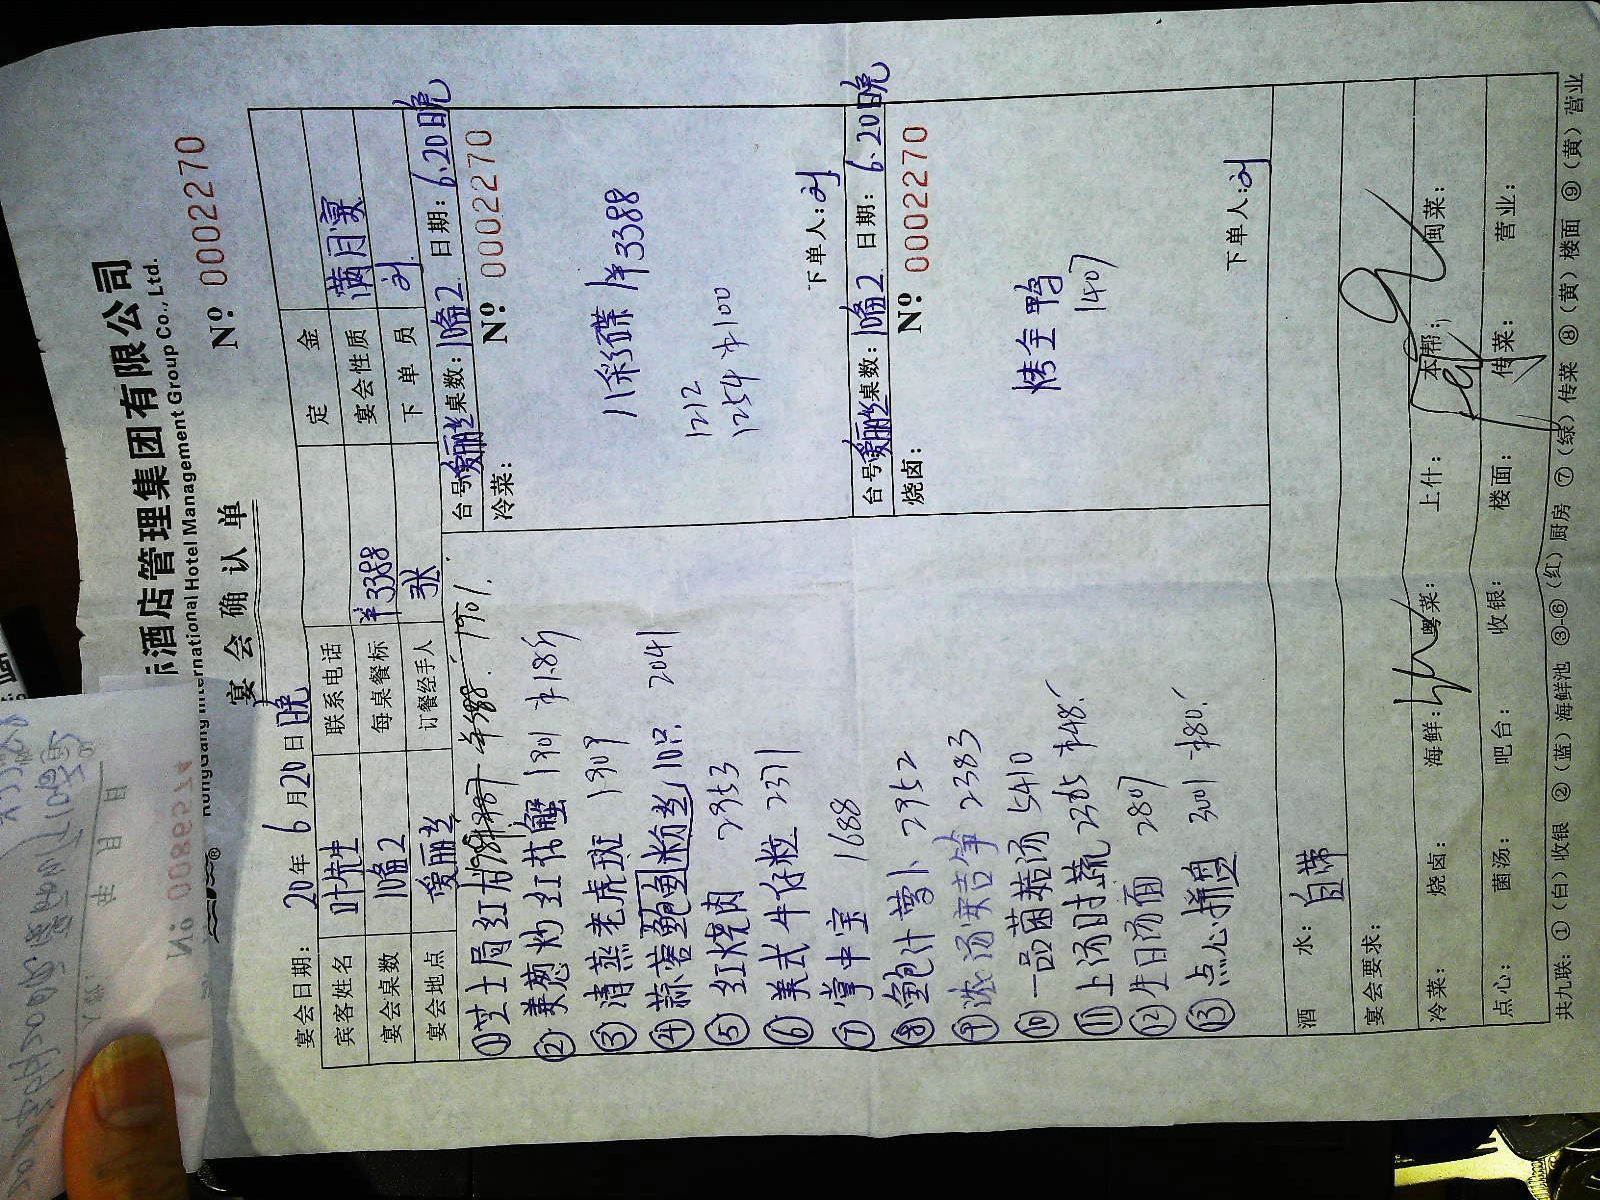 际酒店管理集团有限公司
International Hotel Management Group Co., Ltd.
宴会确认单
№ 0002270
宴会日期: 20年 6月20日晚
定金
宾客姓名 叶先生 联系电话 宴会性质 满月宴
宴会桌数 1备2 每桌餐标 ¥3388 下单员 刘
宴会地点 爱丽丝 订餐经手人 张
①芝士局红
②兼葱灼红花蟹 1901
③清蒸老虎斑 1909
④蒜蓉鲍鱼粉丝 10只 2041
⑤红烧肉 2953
⑥美式牛仔粒 2371
⑦掌中宝 1688
⑧鲍汁萝卜 2952
⑨浓汤 2383
⑩一品菌菇汤 5410
⑪上汤时蔬 2385 ¥48.
⑫生日汤面 2807
⑬点心拼盘 3001 ¥80.
台号:爱丽丝 桌数:1备2 日期:6.20晚
冷菜: № 0002270
八彩碟 ¥3388
1212
1254 ¥100
下单人:刘
台号:爱丽丝 桌数:1备2 日期:6.20晚
烧卤: № 0002270
烤全鸭
1407
下单人:刘
酒水: 自带
宴会要求:
冷菜: 烧卤: 海鲜: 粤菜: 上什: 本帮: 闽菜:
点心: 菌汤: 吧台: 收银: 楼面: 传菜: 营业:
共九联: ①(白)收银 ②(蓝)海鲜池 ③-⑥(红)厨房 ⑦(绿)传菜 ⑧(黄)楼面 ⑨(黄)营业